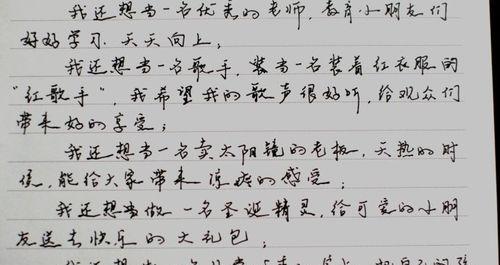 我还想当一名优秀的老师，教育小朋友们
好好学习，天天向上；
我还想当一名歌手，装当一名装着红衣服的
“红歌手”，我希望我的歌声很好听，给观众们
带来好的享受；
我还想当一名卖太阳镜的老板，天热的时
候，能给大家带来凉爽的感受；
我还想当做一名圣诞精灵，给可爱的小朋
友送去快乐的大礼包；
我还想当一名